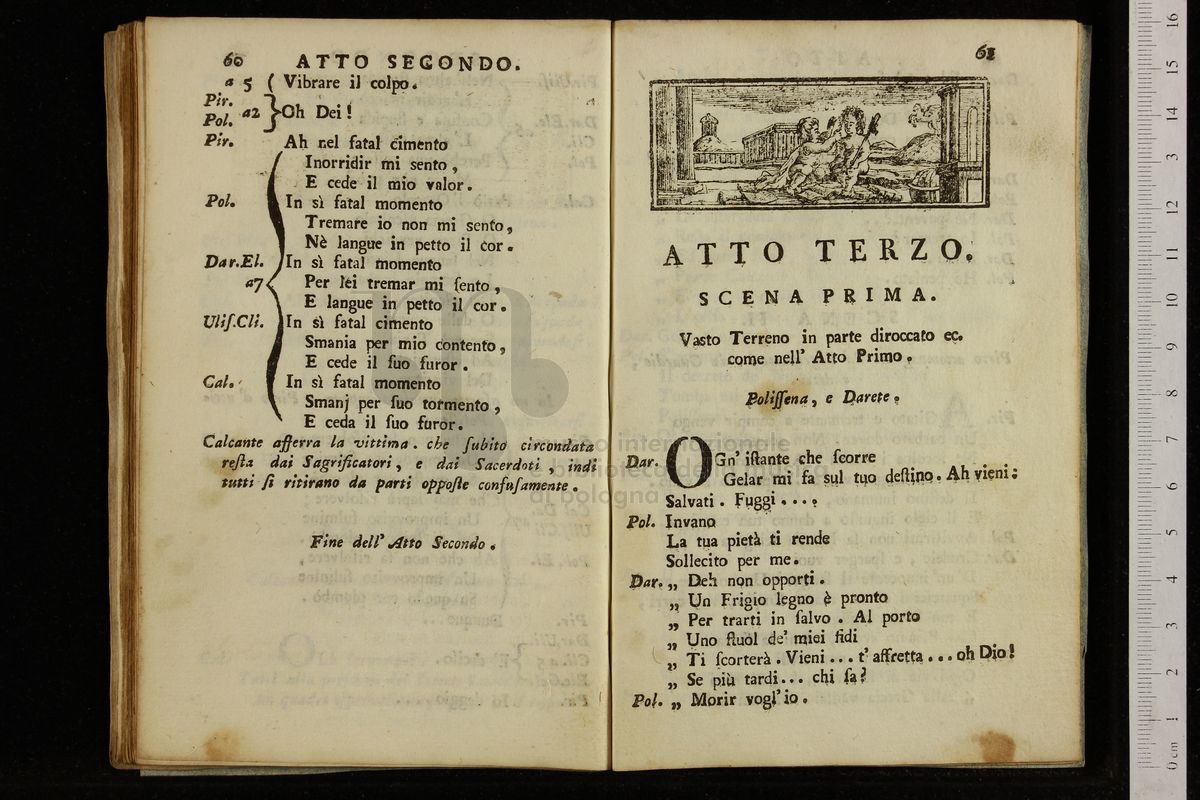 60 ATTO SECONDO.
a 5 ( Vibrare il colpo.
Pir.
Pol. a2 } Oh Dei!
Pir. Ah nel fatal cimento
Inorridir mi sento,
E cede il mio valor.
Pol. In sì fatal momento
Tremare io non mi sento,
Nè langue in petto il cor.
Dar. El. In sì fatal momento
a7 Per lei tremar mi ſento,
E langue in petto il cor.
Uliſ. Cli. In sì fatal cimento
Smania per mio contento,
E cede il ſuo furor.
Cal. In sì fatal momento
Smanj per ſuo tormento,
E ceda il ſuo furor.
Calcante afferra la vittima. che ſubito circondata
reſta dai Sagrificatori, e dai Sacerdoti, indi
tutti ſi ritirano da parti oppoſte confuſamente.
Fine dell' Atto Secondo.
61
ATTO TERZO.
SCENA PRIMA.
Vasto Terreno in parte diroccato ec.
come nell' Atto Primo.
Poliſſena, e Darete.
Dar. OGn' iſtante che ſcorre
Gelar mi fa sul tuo deſtino. Ah vieni:
Salvati. Fuggi....
Pol. Invano
La tua pietà ti rende
Sollecito per me.
Dar. „ Deh non opporti.
„ Un Frigio legno è pronto
„ Per trarti in ſalvo. Al porto
„ Uno ſtuol de' miei fidi
„ Ti ſcorterà. Vieni... t' affretta... oh Dio!
„ Se più tardi... chi ſa?
Pol. „ Morir vogl' io.
museo internazionale
e biblioteca della musica
di bologna
0 cm 1 2 3 4 5 6 7 8 9 10 11 12 13 14 15 16